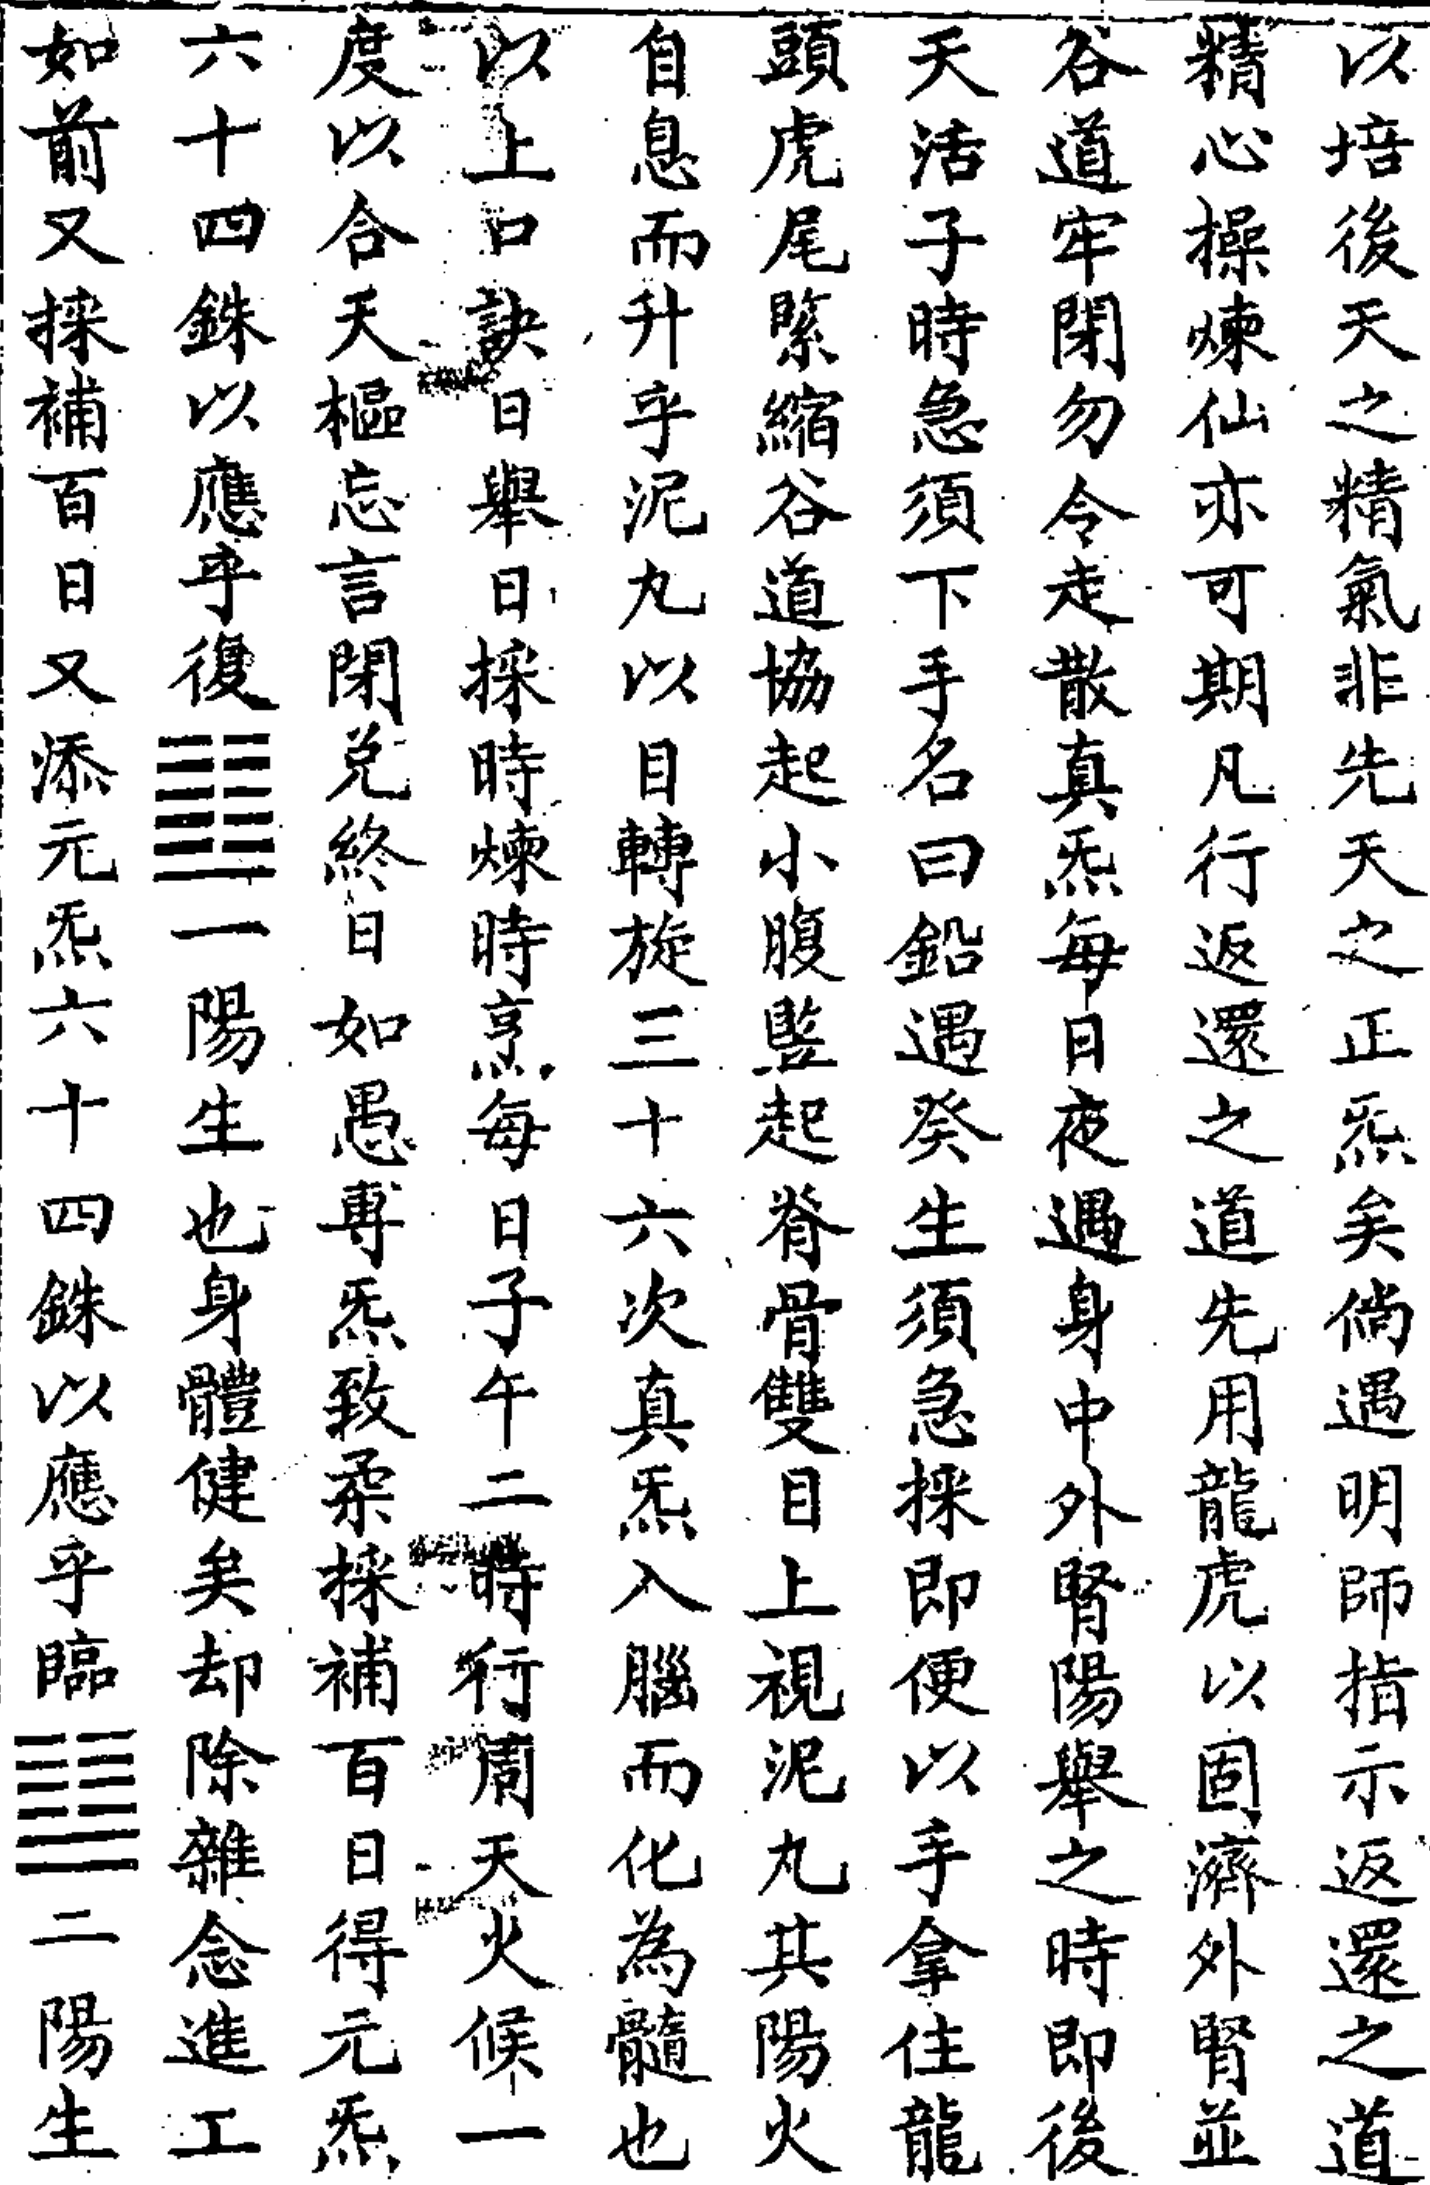 以培後天之精氣非先天之正炁矣倘遇明師指示返還之道
精心操煉仙亦可期凡行返還之道先用龍虎以固濟外腎並
谷道牢閉勿令走散真炁每日夜遇身中外腎陽舉之時即後
天活子時急須下手名曰鉛遇癸生須急採即便以手拿住龍
頭虎尾緊縮谷道協起小腹豎起脊骨雙目上視泥丸其陽火
自息而升乎泥丸以目轉旋三十六次真炁入腦而化為髓也
以上口訣日舉日採時煉時烹每日子午二時行周天火候一
度以合天樞忘言閉兌終日如愚專炁致柔採補百日得元炁
六十四銖以應乎復䷗一陽生也身體健矣却除雜念進工
如前又採補百日又添元炁六十四銖以應乎臨䷒二陽生